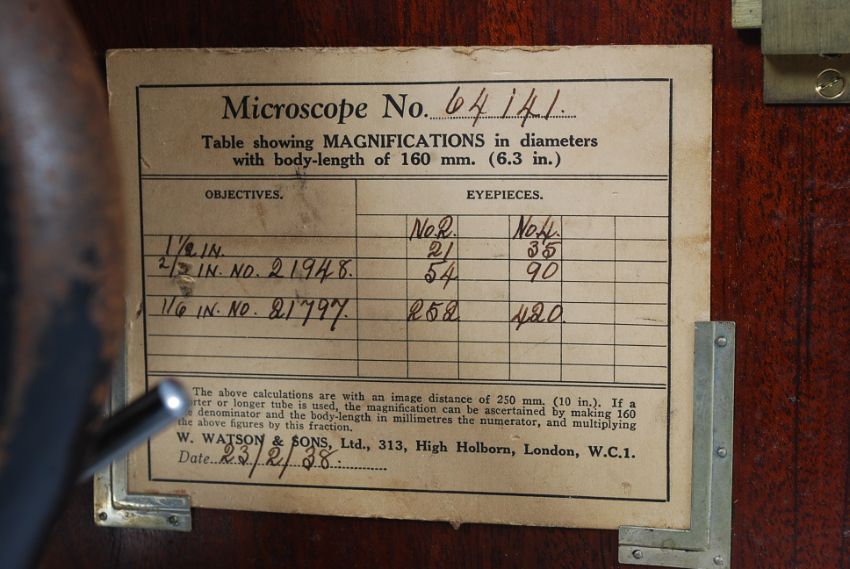 Microscope No. 64141.
Table showing MAGNIFICATIONS in diameters
with body-length of 160 mm. (6.3 in.)
OBJECTIVES. EYEPIECES.
No.2. No.4.
1 1/2 IN. 21 35
2/3 IN. NO. 21948. 54 90
1/6 IN. NO. 21797. 252 420.
The above calculations are with an image distance of 250 mm. (10 in.). If a
or longer tube is used, the magnification can be ascertained by making 160
denominator and the body-length in millimetres the numerator, and multiplying
the above figures by this fraction.
W. WATSON & SONS, Ltd., 313, High Holborn, London, W.C.1.
Date 23/2/38.